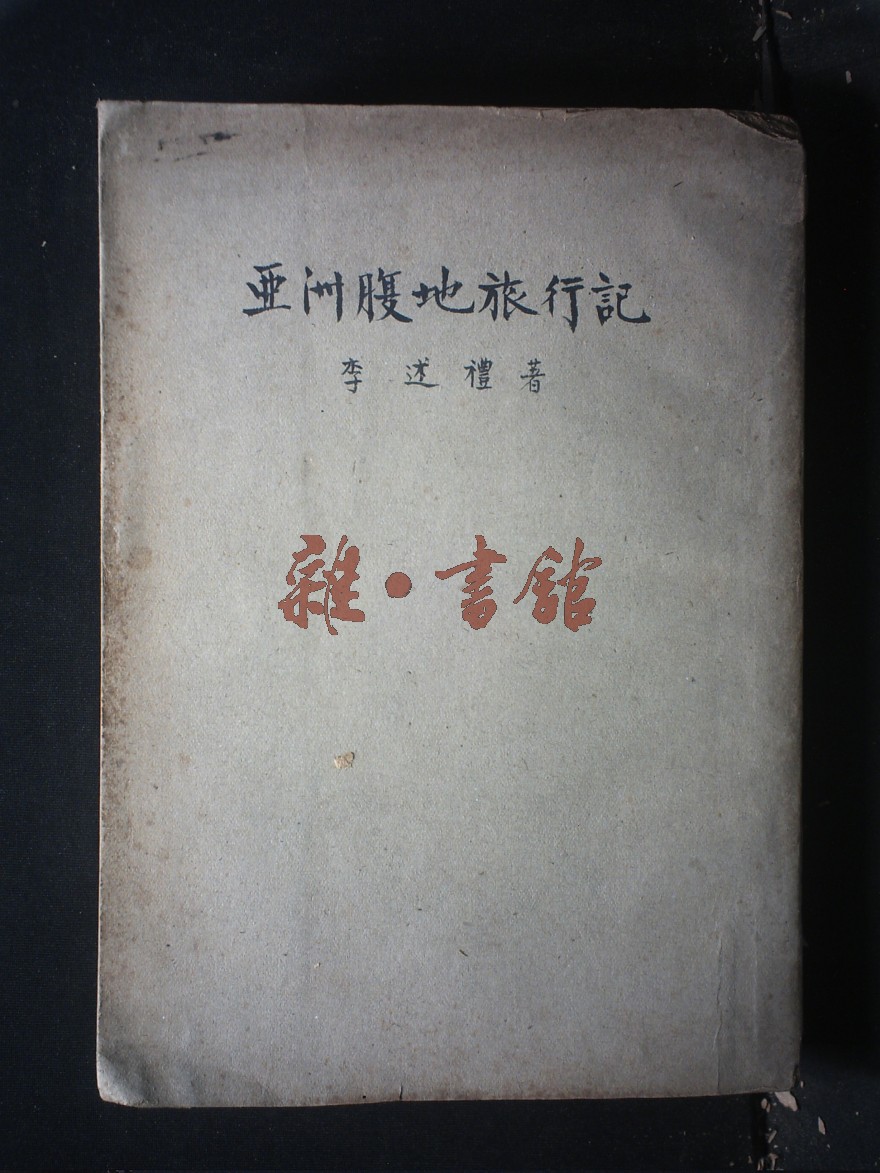 亜洲腹地旅行記
李述禮著
雜·書館